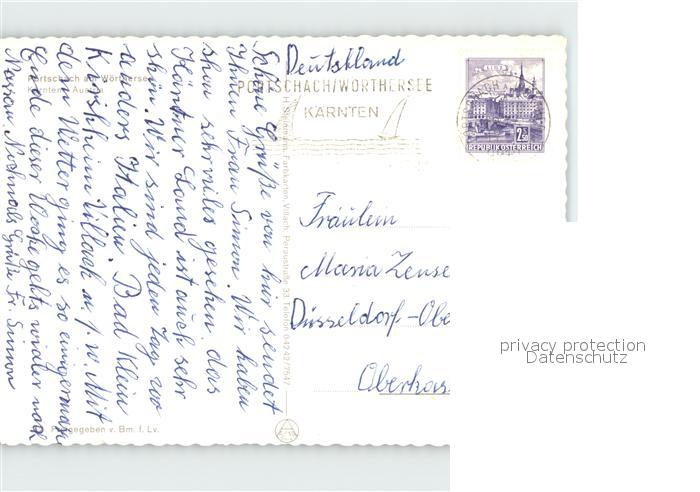 Schöne Grüße von hir sendet
Ihnen Frau Simon. Wir haben
shon sehr viles gesehen. das
Kärntner Land ist auch sehr
shön. Wir sind jeden Tag wo
anders Italien. Bad Klein
Kirshheim Villach u. s. w. Mit
den Wetter ging es so einigermaßen
Ende dieser Woche gehts wieder nach
Nassau. Nochmals Grüße Fr. Simon
Pörtschach am Wörthersee
Kärnten Austria
Freigegeben v. Bm. f. Lv.
Farbkarten, Villach, Peraustraße 33, Telefon 04242/7547
Deutshland
PÖRTSCHACH/WÖRTHERSEE
KÄRNTEN
LINZ
2.50
REPUBLIK ÖSTERREICH
Fräulein
Maria Zense
Düsseldorf-Obe
Oberkas
privacy protection
Datenschutz